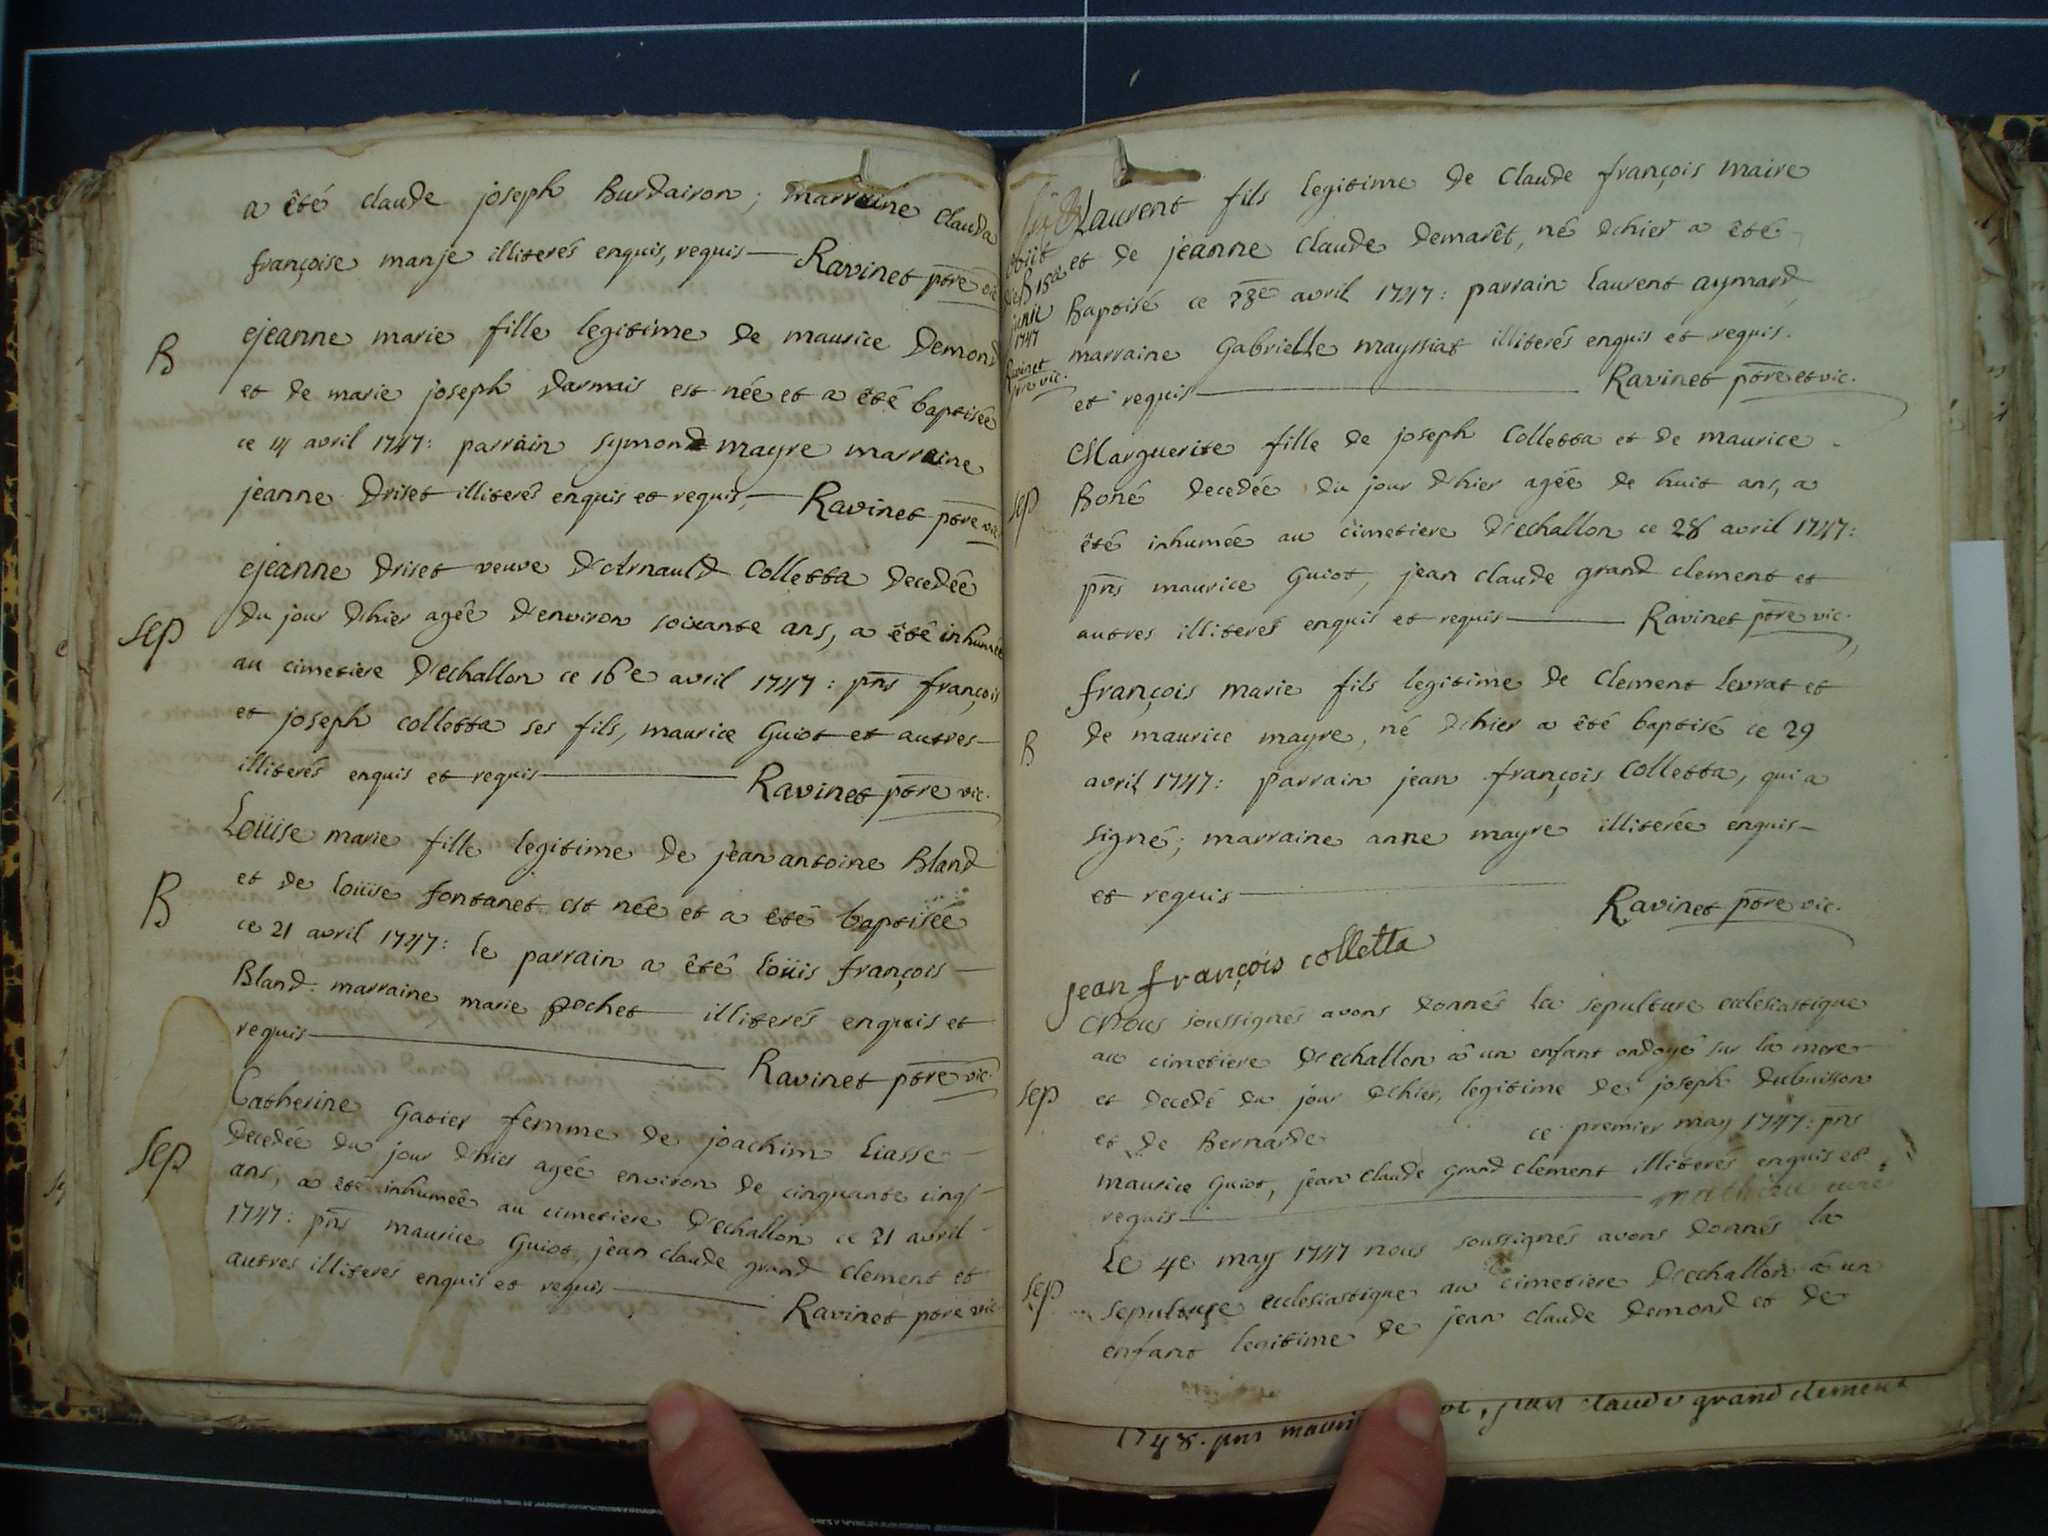 a été claude joseph Burdairon; marraine Clauda
françoise manje illiterés enquis, requis — Ravinet ptre vic
B
jeanne marie fille legitime de maurice Demond
et de marie joseph Darmais est née et a été baptisée
ce 14 avril 1747: parrain symond mayre marraine
jeanne Driset illiterés enquis et requis, — Ravinet ptre vic
Sep
jeanne Driset veuve D'Arnauld Colletta decedée
du jour d'hier agée d'environ soixante ans, a été inhumée
au cimetiere D'echallon ce 16e avril 1747: pns françois
et joseph colletta ses fils, maurice Guiot et autres
illiterés enquis et requis — Ravinet ptre vic.
B
Loüise marie fille legitime de jean antoine Bland
et de loüise fontanet est née et a été baptisée
ce 21 avril 1747: le parrain a été loüis françois
Bland: marraine marie pochet illiterés enquis et
requis — Ravinet ptre vic.
Sep
Catherine Gatier femme de joachim Liasse
decedée du jour d'hier agée environ de cinquante cinq
ans, a été inhumée au cimetiere D'echallon ce 21 avril
1747: pns maurice Guiot, jean claude grand clement et
autres illiterés enquis et requis — Ravinet ptre vic
obiit
junii
1747
Ravinet
ptre vic.
Laurent fils legitime de Claude françois maire
et de jeanne Claude Demarêt, né d'hier a été
Baptisé ce avril 1747: parrain laurent aymard,
marraine Gabrielle mayssiat illiterés enquis et requis.
et requis — Ravinet ptre et vic.
sep
Marguerite fille de joseph Colletta et de maurice
Boné decedée du jour d'hier agée de huit ans, a
été inhumée au cimetiere D'echallon ce 28 avril 1747:
pns maurice Guiot, jean claude grand clement et
autres illiterés enquis et requis — Ravinet ptre vic.
B
françois marie fils legitime de Clement Levrat et
de maurice mayre, né d'hier a été baptisé ce 29
avril 1747: parrain jean françois Colletta, qui a
signé; marraine anne mayre illiterée enquis
et requis —
Ravinet ptre vic.
jean françois colletta
sep
Nous soussignés avons donnés la sepulture ecclesiastique
au cimetiere D'echallon a un enfant ondoyé sur la mere
et decedé du jour d'hier, legitime de joseph dubuisson
et de Bernarde ce premier may 1747: pns
maurice Guiot, jean claude grand clement illiterés enquis et
requis —
sep
Le 4e may 1747 nous soussignés avons donnés la
sepulture ecclesiastique au cimetiere D'echallon a un
enfant legitime de jean claude Demond et de
1748. pns jean claude grand clement